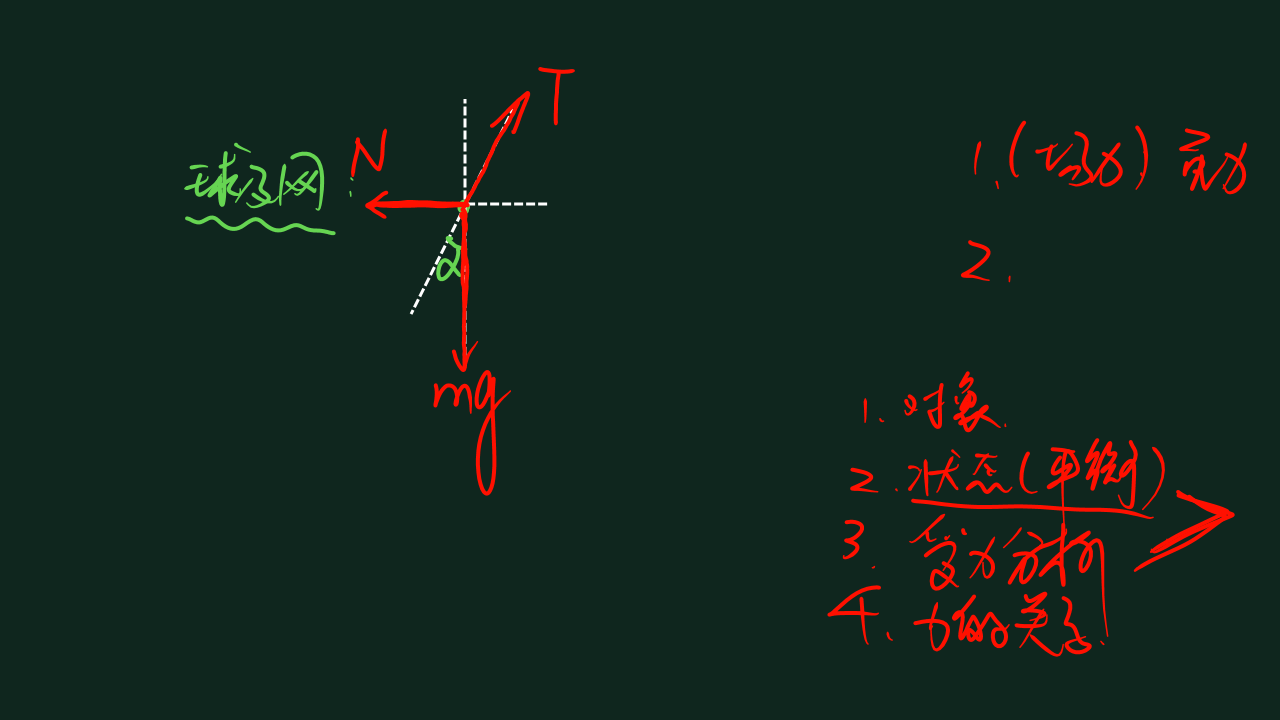 T
球及网:
N
α
mg
1.(场力)重力
2.
1.对象.
2.状态(平衡)
3.受力分析
4.力的关系.